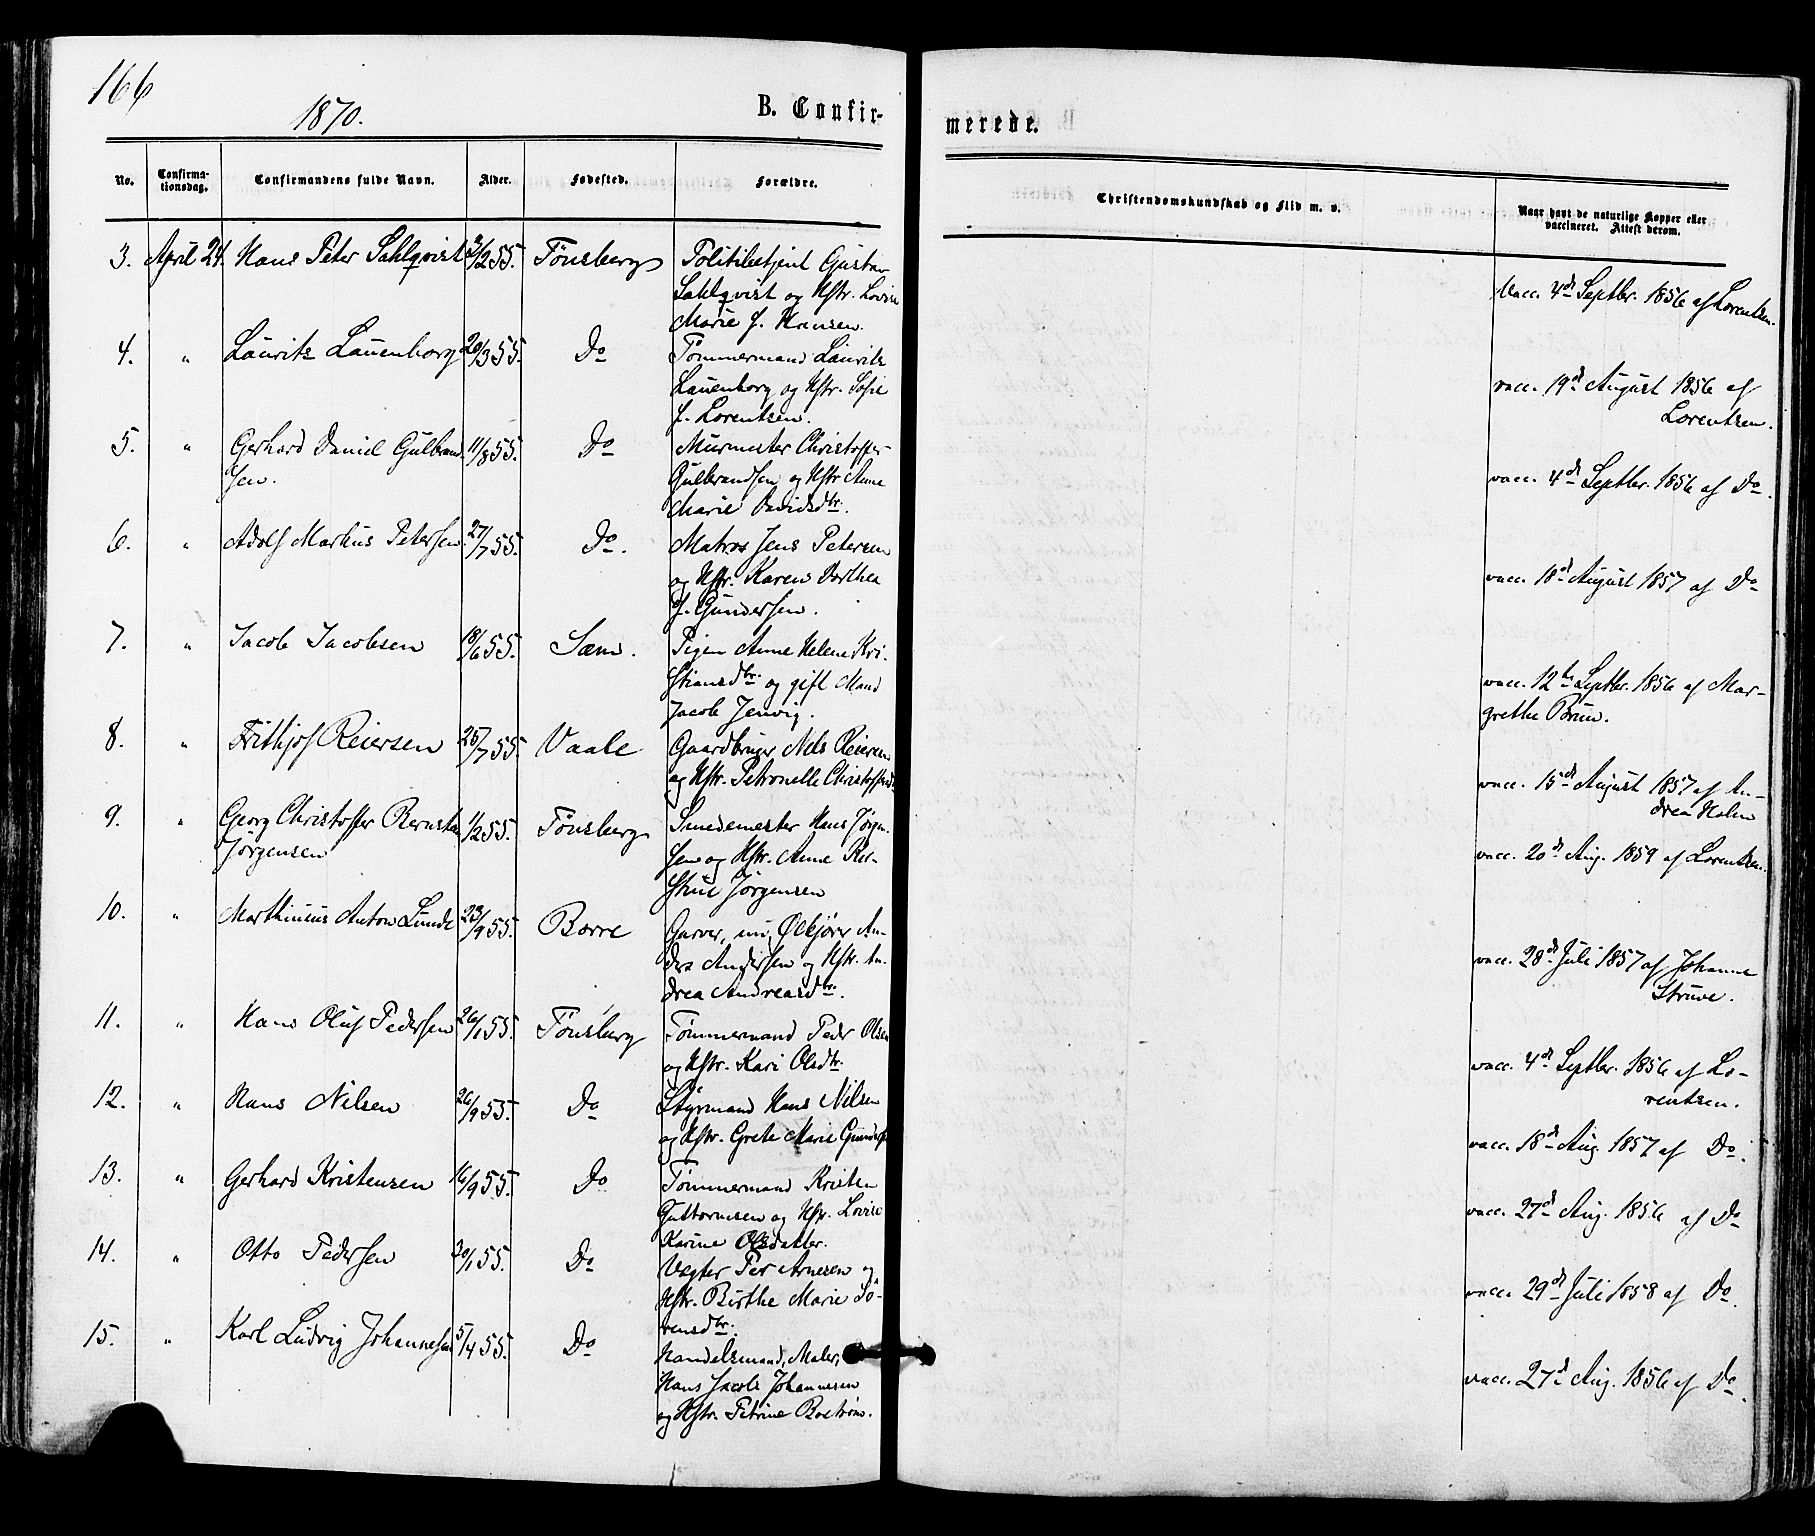 166
1870.
B. Confir-
merede.
No.
Confirma-
tionsdag.
Confirmandens fulde Navn.
Alder.
Fødested.
Forældre.
Christendomskundskab og Flid m. v.
Naar havt de naturlige Kopper eller
vaccineret. Attest derom.
3. April 24. Hans Peter Sahlqvist 2/2 55. Tönsberg Politibetjent Gustav
Sahlqvist og Hstr. Lovise
Marie f. Hansen.
vacc. 4de Septbr. 1856 af Lorentsen.
4. " Lauritz Lauenborg 20/3 55. Do Tömmermand Lauritz
Lauenborg og Hstr. Sofie
f. Lorentsen.
vacc. 19de August 1856 af
Lorentsen.
5. " Gerhard Daniel Gulbrand- 11/8 55. Do Murmester Christoffer
sen. Gulbrandsen og Hstr Anne
Marie Davidsdtr.
vacc. 4de Septbr. 1856 af Do.
6. " Adolf Markus Petersen 27/7 55. Do. Matros Jens Petersen
og Hstr. Karen Dorthea
f. Gundersen.
vacc. 18de August 1857 af Do
7. " Jacob Jacobsen 18/6 55. Sæm. Pigen Anne Helene Kri-
stiansdtr. og gift Mand
Jacob Jenvig.
vacc. 12te Septbr. 1856 af Mar-
grethe Brun.
8. " Frithjof Reiersen 25/7 55. Vaale Gaardbruger Nels Reiersen
og Hstr. Petronelle Christoffersd.
vacc. 15de August 1857 af An-
drea Holm
9. " Georg Christoffer 1/2 55. Tönsberg Smedemester Hans Jörgen-
Jörgensen sen og Hstr. Anne Kri-
stine Jörgensen
vacc. 20de Aug. 1859 af Lorentsen.
10. " Marthinius Anton Lunde 23/9 55. Borre Garver, nu Ølkjører An-
ders Andersen og Hstr. An-
drea Andreasdtr.
vacc. 28de Juli 1857 af Johanne
Struve.
11. " Hans Oluf Pedersen 26/1 55. Tönsberg Tömmermand Peder Olsen
og Hstr. Kari Olsdtr.
vacc. 4de Septbr. 1856 af Lo-
rentsen.
12. " Hans Nilsen 26/9 55. Do Styrmand Hans Nilsen
og Hstr. Grete Marie Gunders
vacc. 18de Aug. 1857 af Do.
13. " Gerhard Kristensen 16/9 55. Do Tömmermand Kristen
Guttormsen og Hstr. Lovise
Karine Olsdatter.
vacc. 27de Aug. 1856 af Do
14. " Otto Pedersen 20/1 55. Do Vægter Per Arnesen og
Hstr. Birthe Marie So-
rensdtr.
vacc. 29de Juli 1858 af Do.
15. " Karl Ludvig Johannesen 5/4 55. Do Handelsmand, Maler,
Hans Jacob Johannesen
og Hstr. Petrine Boström.
vacc. 27de Aug. 1856 af Do.